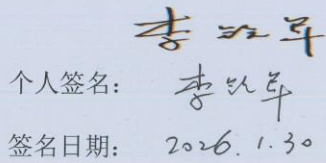 李
个人签名：李
签名日期：2026.1.30